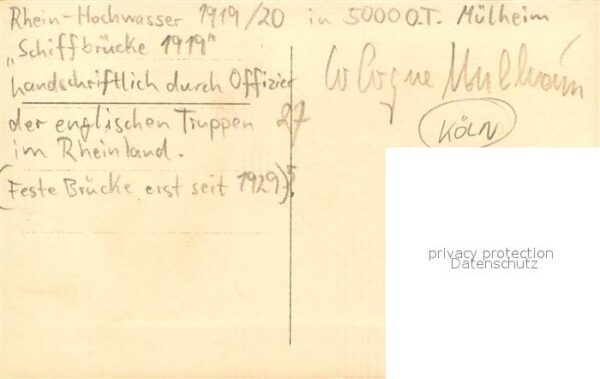 Rhein-Hochwasser 1919/20 in 5000 O.T. Mülheim
„Schiffbrücke 1919"
handschriftlich durch Offizier
der englischen Truppen 27
im Rheinland.
(Feste Brücke erst seit 1929)
Cologne Mulheim
KÖLN
privacy protection
Datenschutz